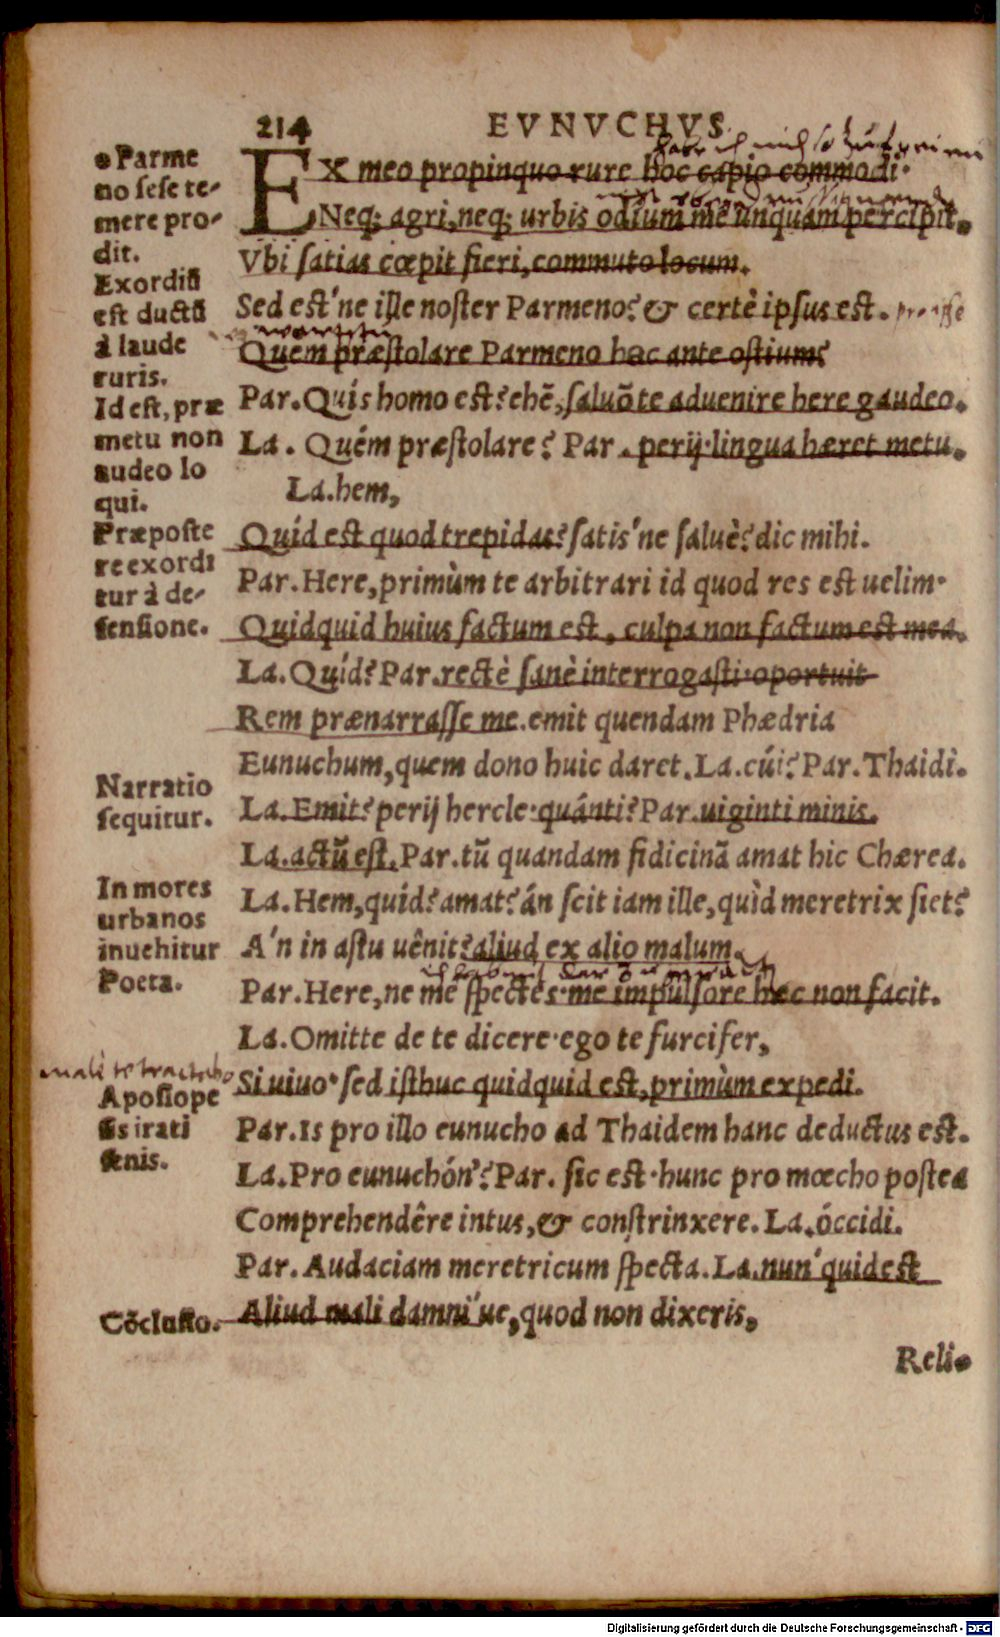 214
EVNVCHVS.
EX meo propinquo rure hoc capio commodi·
Neq; agri, neq; urbis odium me unquam percipit.
Vbi satias cœpit fieri, commuto locum.
Sed est'ne ille noster Parmeno? & certè ipsus est.
Quem præstolare Parmeno hac ante ostium?
Par. Quis homo est? ehē, saluõ te aduenire here gaudeo.
La. Quém præstolare? Par. perij·lingua hæret metu.
La. hem,
Quid est quod trepidas? satis'ne saluè? dic mihi.
Par. Here, primùm te arbitrari id quod res est uelim·
Quidquid huius factum est, culpa non factum est mea.
La. Quíd? Par. rectè sanè interrogasti·oportuit
Rem prænarrasse me. emit quendam Phædria
Eunuchum, quem dono huic daret. La. cúi? Par. Thaidi.
La. Emit? perij hercle·quánti? Par. uiginti minis.
La. actũ est. Par. tũ quandam fidicinã amat hic Chærea.
La. Hem, quíd? amat? án scit iam ille, quìd meretrix siet?
A'n in astu uênit? aliud ex alio malum.
Par. Here, ne me spectes·me impulsore hæc non facit.
La. Omitte de te dicere·ego te furcifer,
Si uiuo·sed isthuc quidquid est, primùm expedi.
Par. Is pro illo eunucho ad Thaidem hanc deductus est.
La. Pro eunuchón'? Par. sic est·hunc pro mœcho postea
Comprehendêre intus, & constrinxere. La. óccidi.
Par. Audaciam meretricum specta. La. nun'quid est
Aliud mali damni'ue, quod non dixeris,
Reli-
Parme
no sese te-
mere pro-
dit.
Exordiũ
est ductũ
à laude
ruris.
Id est, præ
metu non
audeo lo
qui.
Præposte
re exordi
tur à de-
fensione.
Narratio
sequitur.
In mores
urbanos
inuehitur
Poeta.
male te tractabo
Aposiope
sis irati
senis.
Cōclusio.
Digitalisierung gefördert durch die Deutsche Forschungsgemeinschaft - DFG